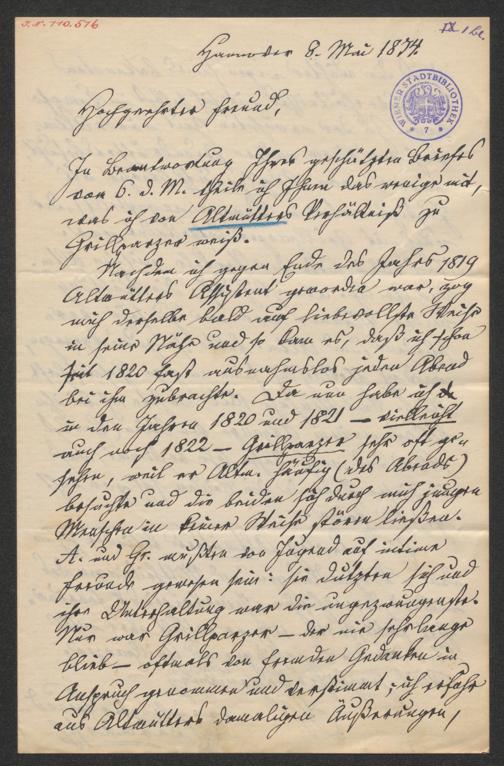 J.N. 110.576
IX 1 Bl.
Hannover 8. Mai 1874.
WIENER STADTBIBLIOTHEK
* 7 *
Hochgeehrter Freund,
In Beantwortung Ihres geschätzten Briefes
vom 6. d. M. theile ich Ihnen das wenige mit,
was ich von Altmütters Verhältniß zu
Grillparzer weiß.
Nachdem ich gegen Ende des Jahrs 1819
Altmütters Assistent geworden war, zog
mich derselbe bald auf liebevollste Weise
in seine Nähe und so kam es, daß ich schon
seit 1820 fast ausnahmslos jeden Abend
bei ihm zubrachte. Da nun habe ich
in den Jahren 1820 und 1821 – vielleicht
auch noch 1822 – Grillparzer sehr oft ge-
sehen, weil er Altm. häufig (des Abends)
besuchte und die beiden sich durch mich jungen
Menschen in keiner Weise stören ließen.
A. und Gr. mußten von Jugend auf intime
Freunde gewesen sein: sie dutzten sich und
ihre Unterhaltung war die ungezwungenste.
Nur war Grillparzer – der nie sehr lange
blieb – oftmals von fremden Gedanken in
Anspruch genommen und verstimmt; ich erfuhr
aus Altmütters damaligen Äußerungen,